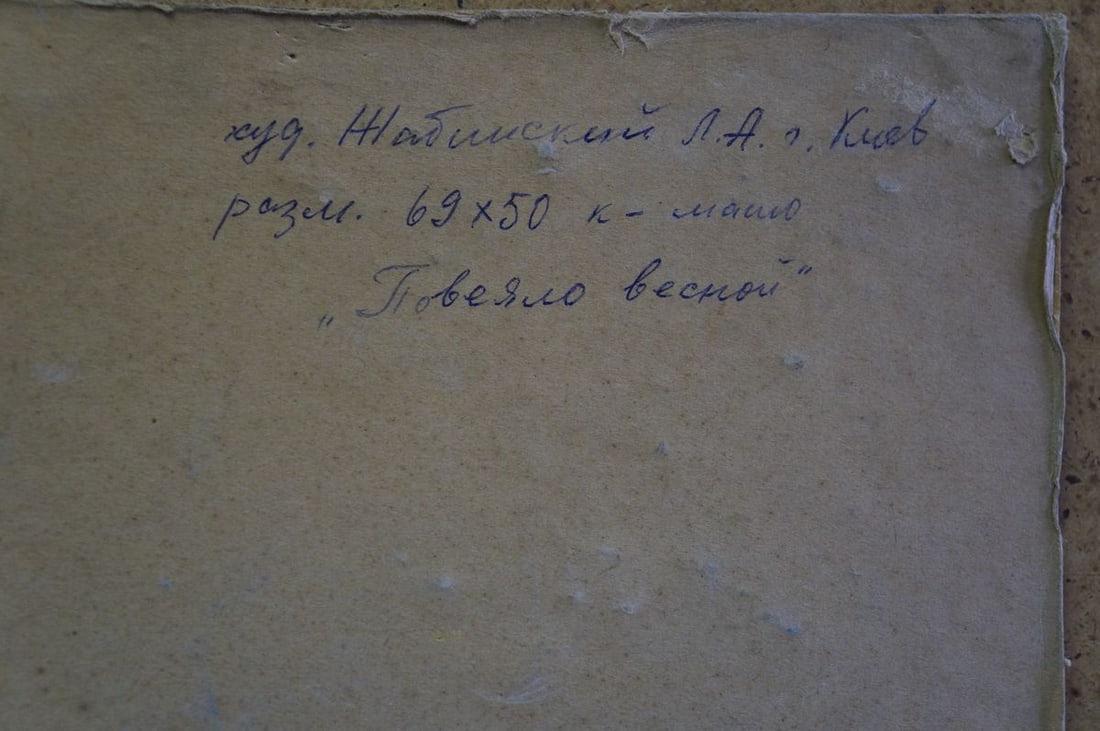 худ. Жаблинский Л.А. г. Киев
разм. 69х50 к - масло
„Повеяло весной"